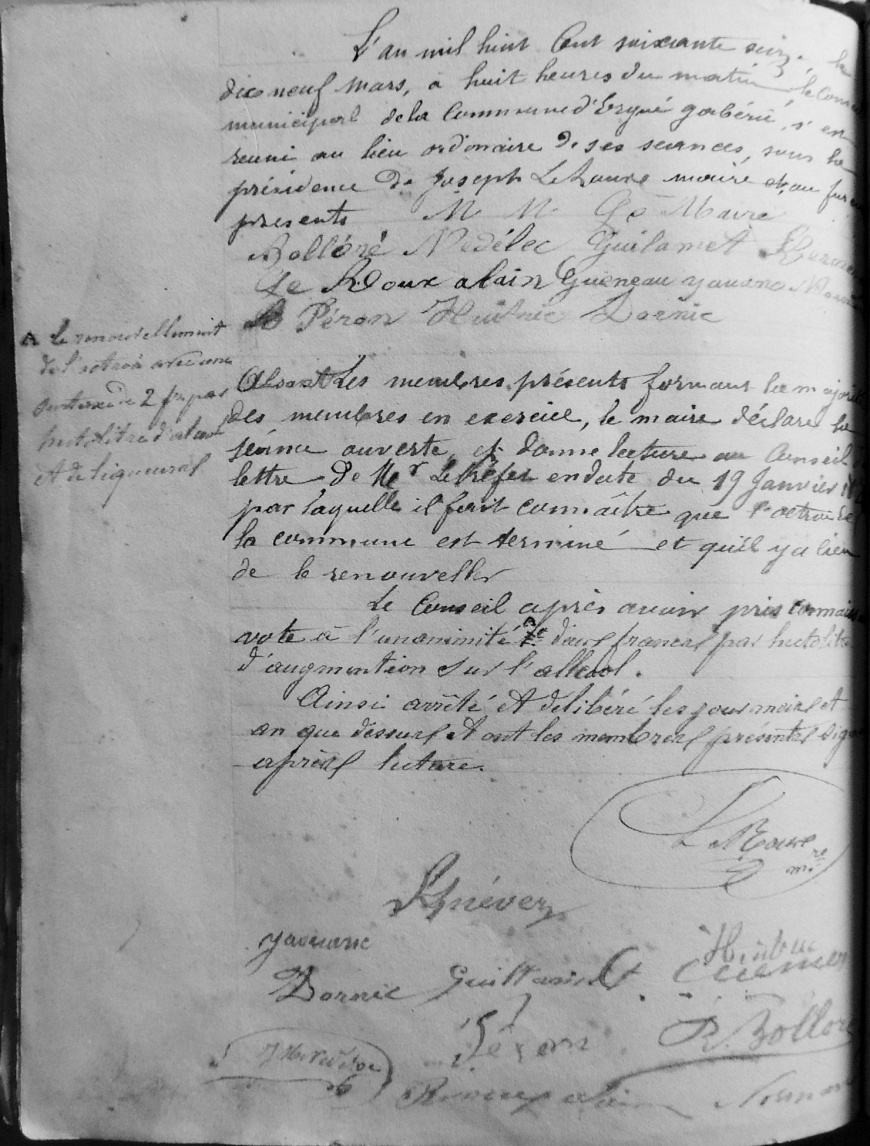 L'an mil huit Cent soixante seize, le
dix neuf Mars, à huit heures du matin le Conseil
municipal de la Commune d'Ergué gabéric, s'est
reuni au lieu ordinaire de ses seances, sous la
présidence de Joseph Le Roux maire et, au furent
presents M M Gé Mavre
Bolloré Nedélec Guilamet
Le Roux alain Gueneau yaouanc
Le Péron Huitric Dornic
A le renouvellement
de l'octroi avec une
surtaxe de 2 frs par
hectolitre d'alcool
et de liqueurs
Absent Les membres présents formant la majorité
des membres en exercice, le maire déclare la
séance ouverte, et donne lecture au Conseil
lettre de Mr Le Préfet en date du 19 Janvier
par laquelle il fait connaître que l'octroi de
la commune est terminé et qu'il y a lieu
de le renouveller
Le Conseil après avoir pris connais
vote à l'unanimité A de deux francs par hectolitre
d'augmention sur l'allcool.
Ainsi arrêté et délibéré les jour mois et
an que dessus et ont les membres présents signé
après lecture.
Le Roux
mre
yaouanc
Huitric
Dornic Guillamet
Péron R. Bolloré
Rouux alain